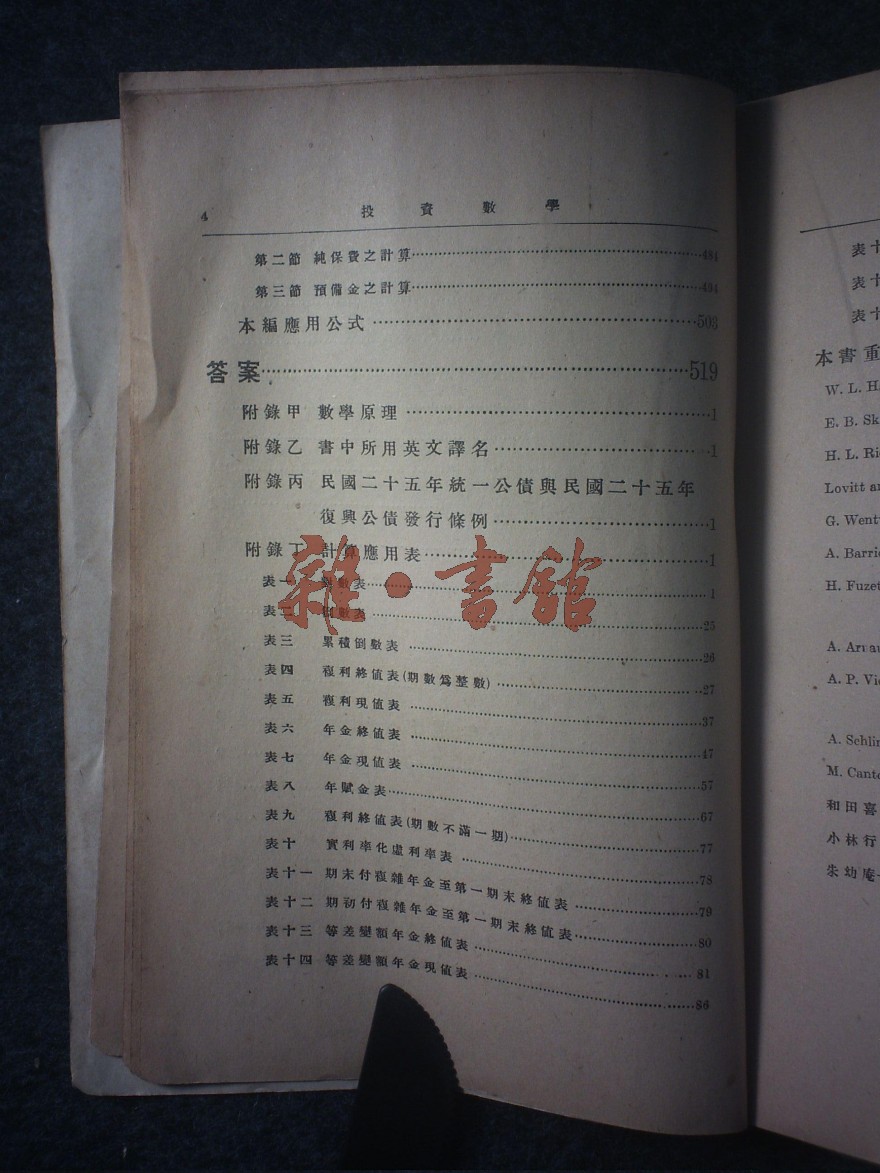 4 投資數學
第二節 純保費之計算……484
第三節 預備金之計算……494
本編應用公式……503
答案……519
附錄甲 數學原理……1
附錄乙 書中所用英文譯名……1
附錄丙 民國二十五年統一公債與民國二十五年
復興公債發行條例……1
附錄丁 計算應用表……1
表一 對數表……1
表二 倒數表……25
表三 累積倒數表……26
表四 複利終値表(期數爲整數)……27
表五 複利現値表……37
表六 年金終値表……47
表七 年金現値表……57
表八 年賦金表……67
表九 複利終値表(期數不滿一期)……77
表十 實利率化虛利率表……78
表十一 期末付複雜年金至第一期末終値表……79
表十二 期初付複雜年金至第一期末終値表……80
表十三 等差變額年金終値表……81
表十四 等差變額年金現値表……86
雜·書館
表十
表十
表十
本書重
W. L. H
E. B. Sk
H. L. Ri
Lovitt a
G. Went
A. Barri
H. Fuzet
A. Arnau
A. P. Vi
A. Schli
M. Cant
和田喜
小林行
朱幼庵